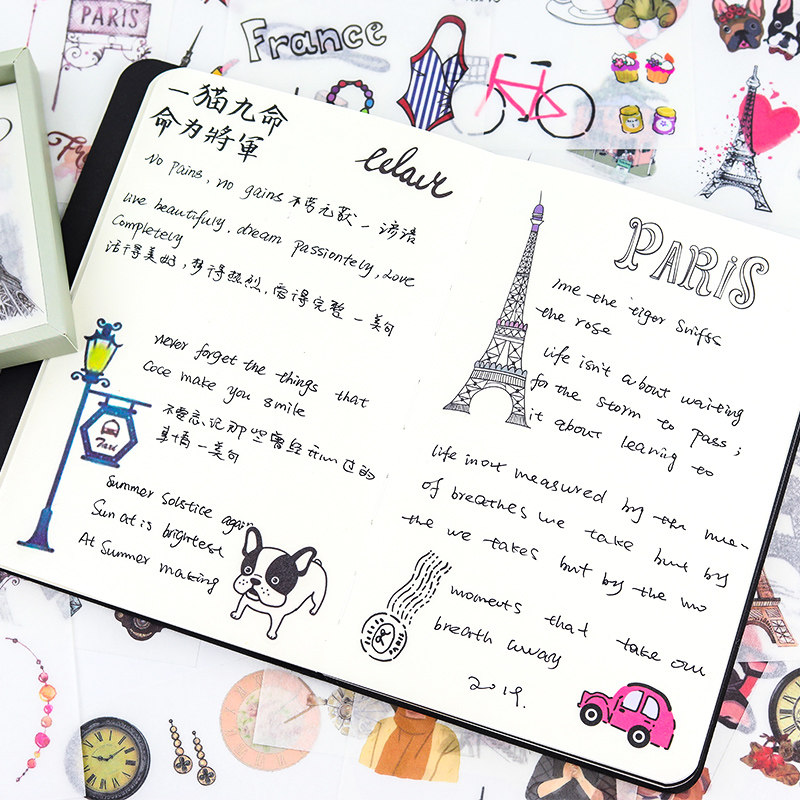 PARIS
France
一猫九命
命为將軍
No pains, no gains 不劳无获 一 谚语
Live beautifully, dream passiontely, Love
Completely
活得美好, 梦得热烈, 爱得完整 一 美句
never forget the things that
make you smile
不要忘记那些曾经 过的
一美句
Taxi
Summer Solstice again
Sun at is brightese
At Summer making
PARIS
the tiger sniffs
the rose
Life isn't about waiting
for the storm to pass;
it about learing to
life in not measured by the nu-
of breathes we take but by
the we takes but by the mo
moments that take our
breath away
PARIS
2019.